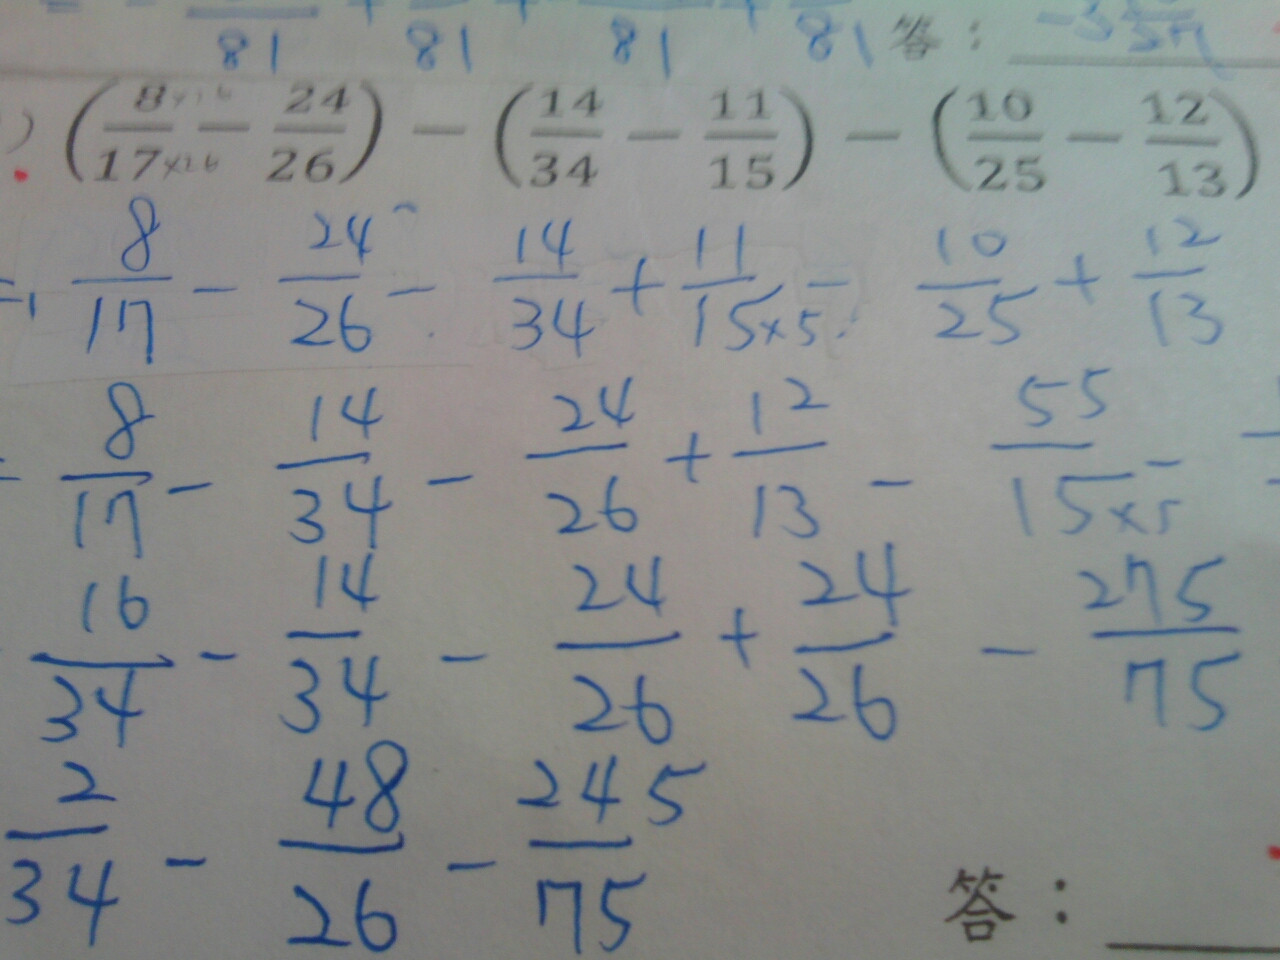 81 81 81 81 答：
) (8/17 − 24/26) − (14/34 − 11/15) − (10/25 − 12/13)
= 8/17 − 24/26 − 14/34 + 11/15×5 − 10/25 + 12/13
= 8/17 − 14/34 − 24/26 + 12/13 − 55/15×5 −
16/34 − 14/34 − 24/26 + 24/26 − 275/75
2/34 − 48/26 − 245/75
答：